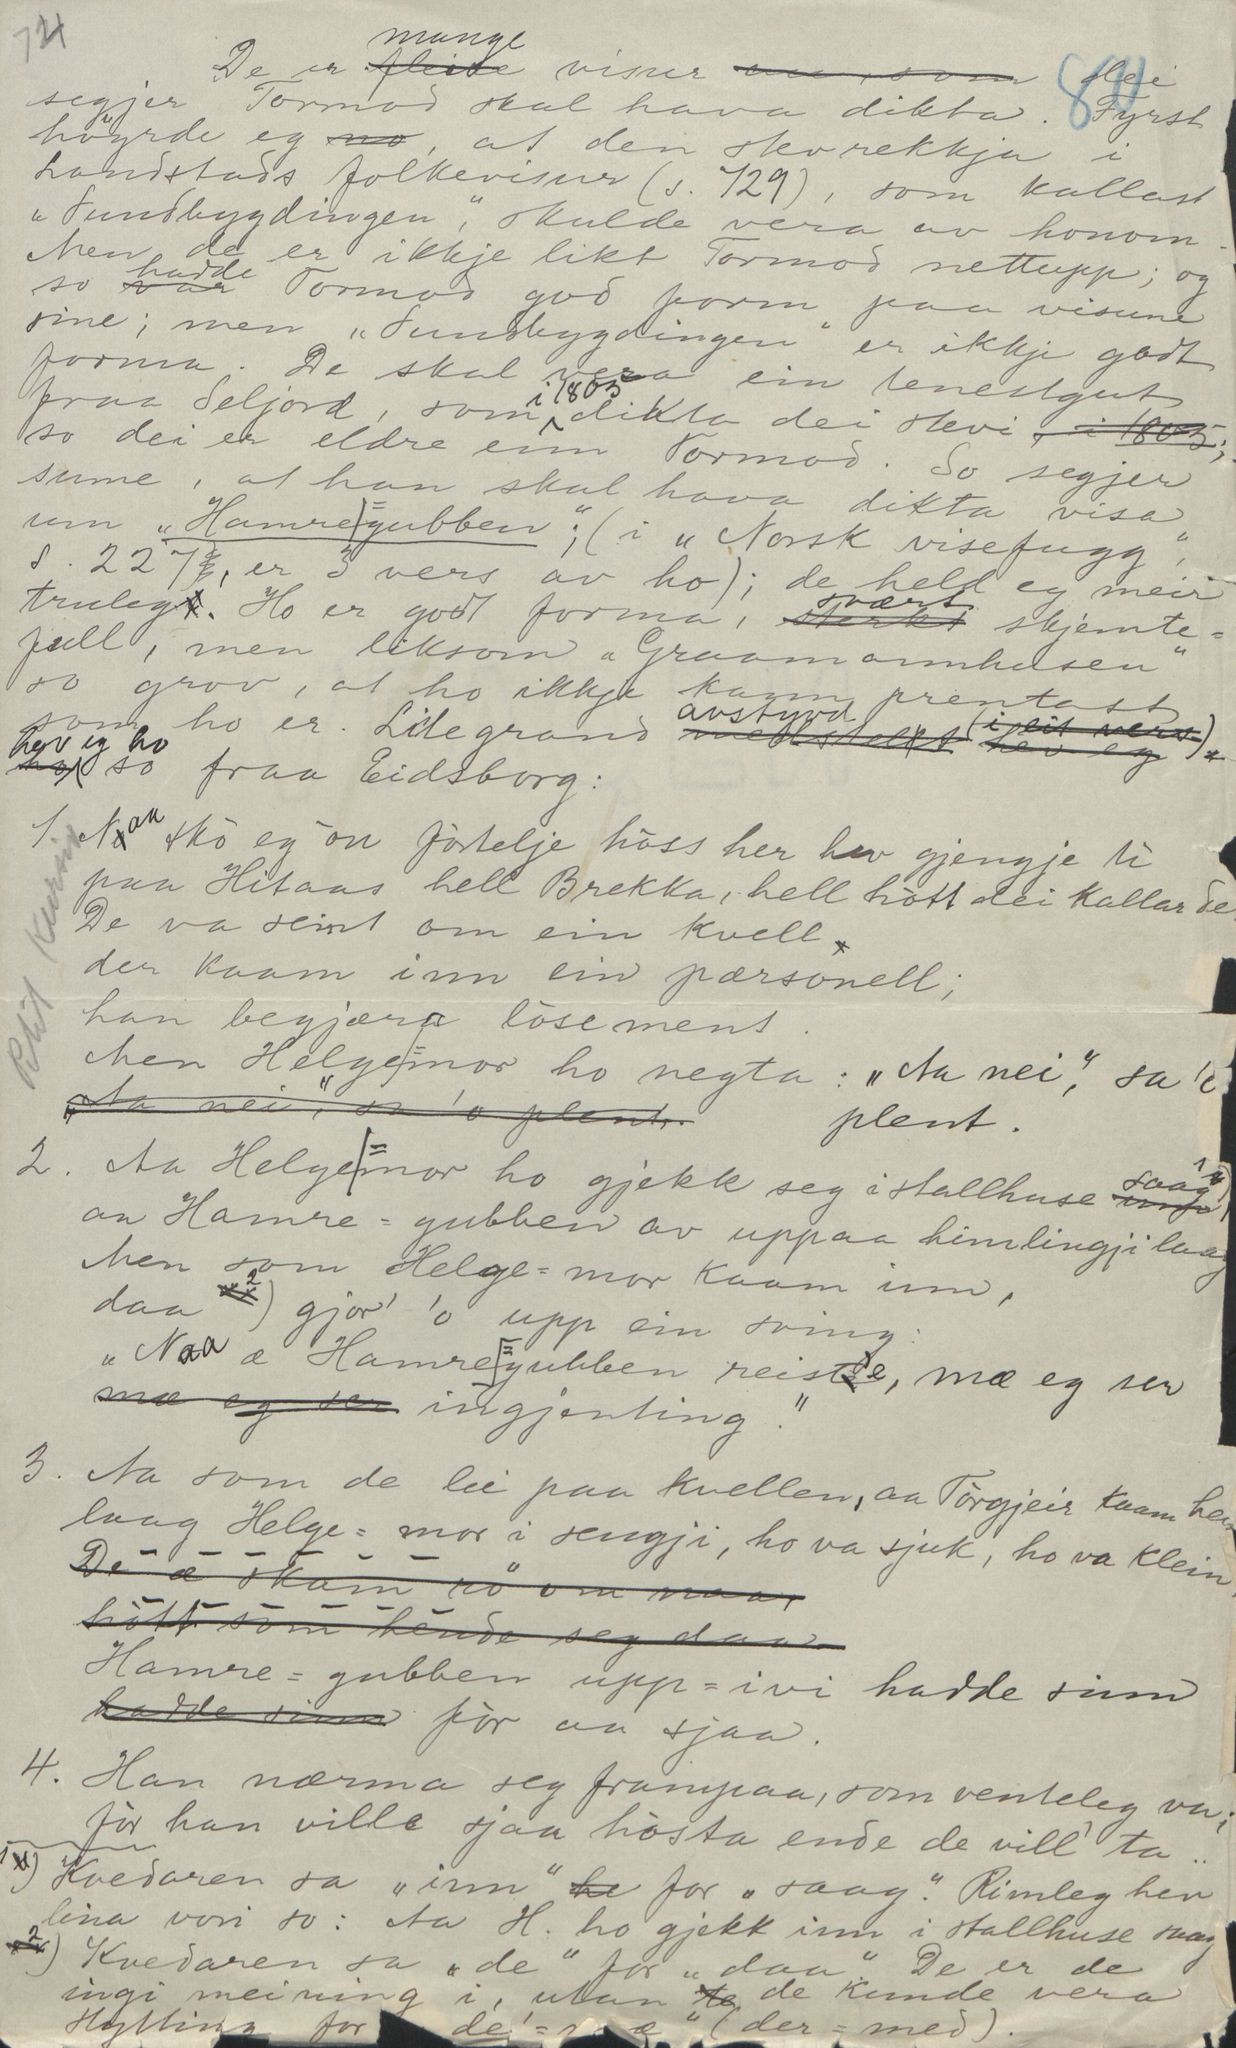 74
811
mange
De er fleire visur dei
segjer Tormod skal hava dikta. Fyrst
höyrde eg no, at den stevrekkja i
Landstads folkevisur (s. 729), som kallast
„Sundbygdingen“, skulde vera av honom.
Men de er ikkje likt Tormod nettupp; og
so var hadde Tormod god form paa visune
sine; men „Sundbygdingen“ er ikkje godt
forma. De skal vera ein tenestgut
fraa Seljord, som i 1805 dikta dei stevi i 1805;
so dei er eldre enn Tormod. So segjer
sume, at han skal hava dikta visa
um „Hamre=gubben“; (i „Norsk visefugg“,
s. 227, er 3 vers av ho); de held eg meir
truleg. Ho er godt forma, sterkt svært skjemte=
full, men liksom „Graamannhusen“
so grov, at ho ikkje kann prentast
som ho er. Litegrand avstyvd (i eit vers) hev eg
hev eg ho so fraa Eidsborg:
Petit Kursiv
1. Naa skò eg ón fòrtelje hòss her hev gjengje ti
paa Hitaas hell Brekka, hell hòtt dei kallar de.
De va seint om ein kvell
der kaam inn ein pærsònell;
han begjæra lòsement.
Men Helge=mor ho negta: „Aa nei“, sa 'o
„Aa nei“, sa 'o plent.
plent.
2. Aa Helge=mor ho gjekk seg i stallhuse inn saag 1)
an Hamre=gubben av uppaa himlingji laag
Men som Helge=mor kaam inn,
daa 2) gjor' 'o upp ein sving:
„Naa æ Hamre=gubben reiste, mæ eg ser
mæ eg ser ingjenting.“
3. Aa som de lei paa kvellen, aa Tòrgjeir kaam heim
laag Helge=mor i sengji, ho va sjuk, ho va klein.
De æ skam sò om naa,
hòtt som hende seg daa
Hamre=gubben upp=ivi hadde sinn
hadde sinn fòr aa sjaa.
4. Han nærma seg frampaa, som venteleg va;
fòr han ville sjaa hòsta ende de vill' ta..
1) Kvedaren sa „inn“ for „saag“. Rimleg hev
lina vori so: Aa H. ho gjekk inn i stallhuse saag
2) Kvedaren sa „de“ for „daa“ De er de
ingi meining i, utan de kunde vera
stytting for de'= mæ“ (der=med).